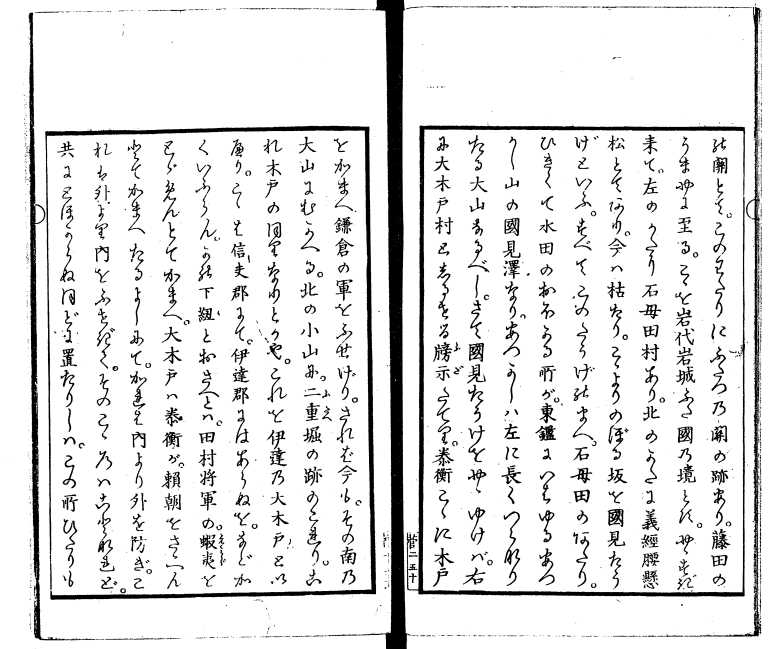 の關とて。このわたりにふたつ乃關の跡あり。藤田の
うまやに至る。こゝを岩代岩城ふた國乃境とす。やゝすぎ
来て。左のかたり石母田村あり。北のかたに義經腰懸
松とてあり。今ハ枯たり。こゝよりのぼる坂を國見たう
げといふ。すべてこのたうげのまへ。石母田のあたり。
ひきくて水田のおほかる所が。東鑑にいはゆるあつ
かし山の國見澤なり。あつかしハ左に長くつらなり
たる大山なるべし。さて國見たうげをやゝゆけば。右
に大木戸村としるせる牓示たてり。泰衡こゝに木戸
をかまへ鎌倉の軍をふせげり。されば今も。その南乃
大山にむかへる。北の小山に。二重堀の跡のこれり。こ
れ木戸の同じなりとかや。これを伊達乃大木戸とい
へり。こゝは信夫郡にて。伊達郡にはあらぬを。などか
くいふらん。かの下紐とおさへとハ。田村将軍の。蝦夷を
とゞめんとてかまへ。大木戸ハ泰衡が。頼朝をさへん
とてかまへたるよしにて。かれは内より外を防ぎ。こ
れは外より内をふせぎて。そのこゝろハことなれど。
共にとほからぬ同どに置たりしハ。この所ひたりも